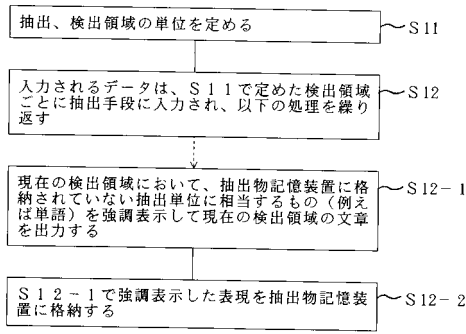 抽出、検出領域の単位を定める
S11
入力されるデータは、S11で定めた検出領域
ごとに抽出手段に入力され、以下の処理を繰り
返す
S12
現在の検出領域において、抽出物記憶装置に格
納されていない抽出単位に相当するもの(例え
ば単語)を強調表示して現在の検出領域の文章
を出力する
S12-1
S12-1で強調表示した表現を抽出物記憶装
置に格納する
S12-2